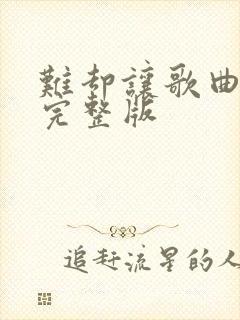 難却讓歌曲
完整版
追赶流星的人